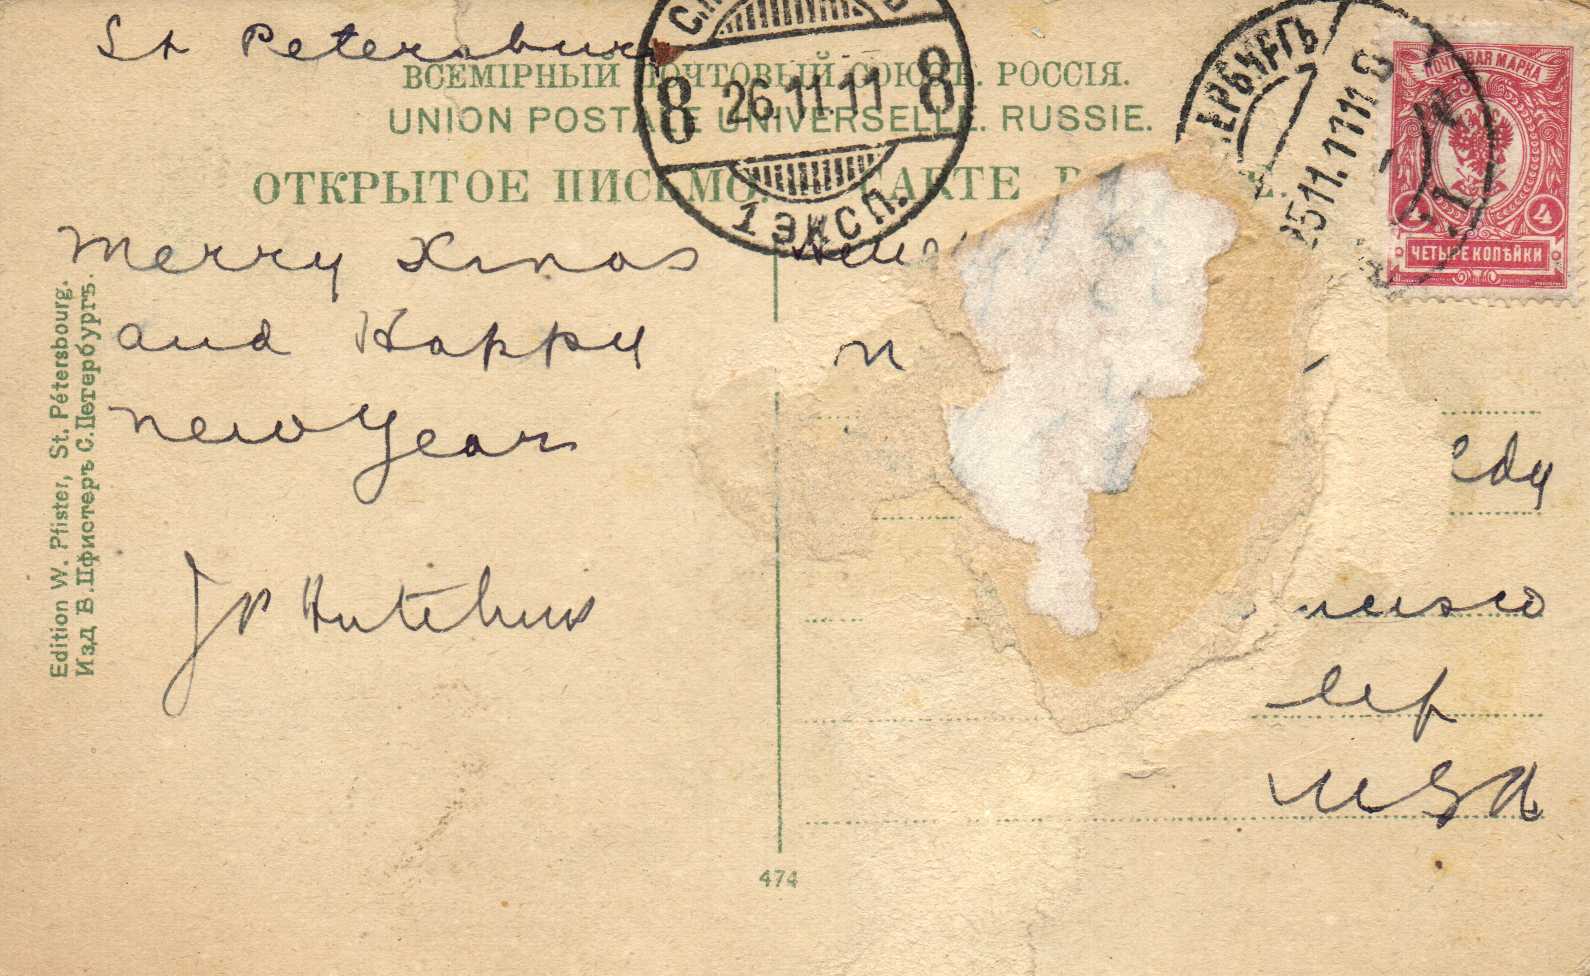 St Petersburg
ВСЕМІРНЫЙ ПОЧТОВЫЙ СОЮЗЪ. РОССІЯ.
UNION POSTALE UNIVERSELLE. RUSSIE.
ОТКРЫТОЕ ПИСЬМО. CARTE
8 26.11.11 8
1 ЭКСП.
ЕРБУРГЪ
25 11.11
ПОЧТОВАЯ МАРКА
4 4
ЧЕТЫРЕ КОПѢЙКИ
Merry Xmas
and Happy
New Year
JP Hutchins
edy
USA
Edition W. Pfister, St. Pétersbourg.
Изд В. Пфистеръ С. Петербургъ.
474